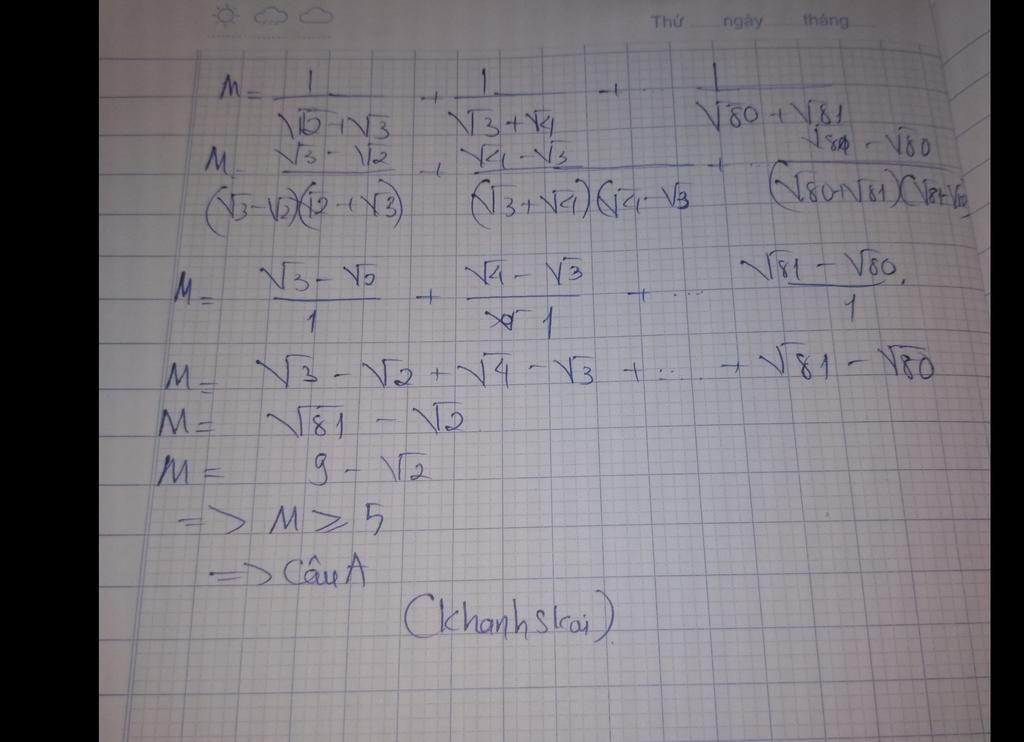 Thứ ngày tháng
M = 1/(√2+√3) + 1/(√3+√4) + ... 1/(√80+√81)
M = (√3-√2)/((√3-√2)(√2+√3)) + (√4-√3)/((√3+√4)(√4-√3) + ... (√81-√80)/((√80+√81)(√81-√80)
M = (√3-√2)/1 + (√4-√3)/1 + ... (√81-√80)/1
M = √3 - √2 + √4 - √3 + ... + √81 - √80
M = √81 - √2
M = 9 - √2
=> M ≥ 5
=> Câu A
(khanhskai)